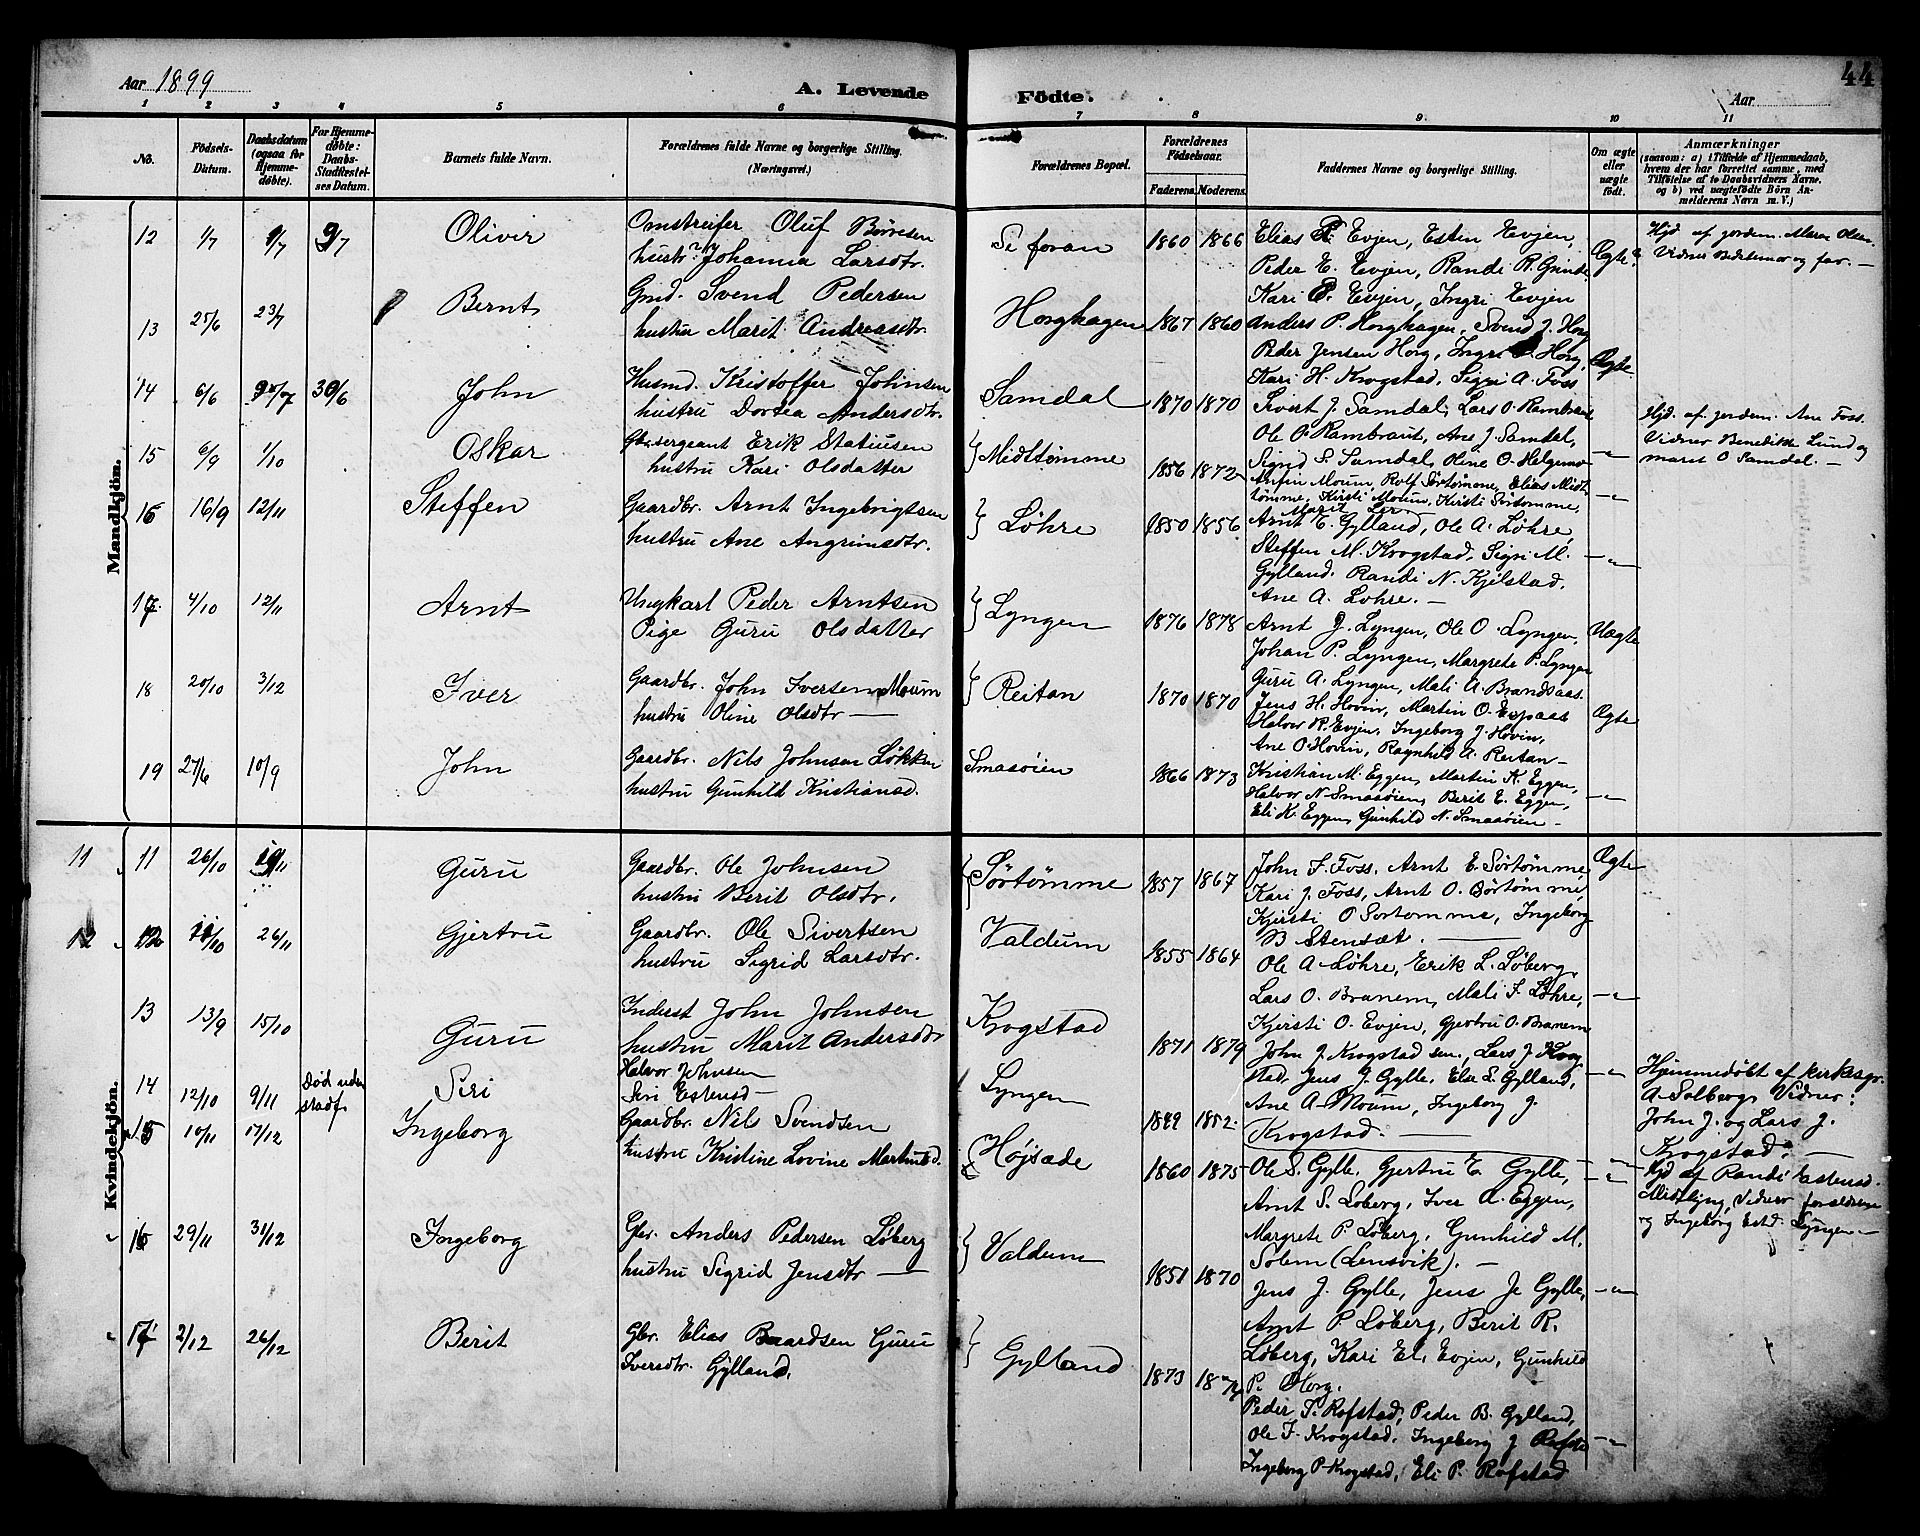 44
Aar 1899
A. Levende Födte.
Aar
1 2 3 4 5 6 7 8 9. 10 11
No.
Födsels-
Datum.
Daabsdatum
(ogsaa for
Hjemme-
døbte).
For Hjemme-
døbte:
Daabs-
Stadfæstel-
ses Datum.
Barnets fulde Navn.
Forældrenes fulde Navne og borgerlige Stilling.
(Næringsvei.)
Forældrenes Bopæl.
Forældrenes
Födselsaar.
Faderens. Moderens.
Faddernes Navne og borgerlige Stilling.
Om ægte
eller
uægte
födt.
Anmærkninger
(saasom: a) i Tilfælde af Hjemmedaab,
hvem der har forrettet samme, med
Tilföielse af to Daabsvidners Navne,
og b) ved uægtefödte Börn An-
melderens Navn m. V.)
Mandkjön.
12 1/7 9/7 9/7 Oliver
Omstreifer Oluf Börresen
hustr. Johanna Larsdtr.
Se foran 1860 1866
Elias P. Evjen, Esten Evjen,
Peder E. Evjen, Randi R. Grinde
Kari P. Evjen, Ingri Evjen
Ægte
Hjd. af jordem. Maren Olsen.
Vidner Bedstemor og far. —
13 25/6 23/7 Bernt
Grd. Svend Pedersen
hustru Marit Andreasdtr.
Horghagen 1867 1860
Anders P. Horghagen, Svend J. Horg
Peder Jensen Horg, Ingri Horg,
Kari H. Krogstad, Sigri A. Foss
Ægte
14 6/6 /7 30/6 John
Husmd. Kristoffer Johnsen
hustru Dortea Andersdtr.
Samdal 1870 1870
Sivert J. Samdal, Lars O. Rambraut
Ole O. Rambraut, Ane J. Samdal,
Sigrid S. Samdal, Oline O. Helgemo
—"—
Hjd. af jordem. Ane Foss.
Vidner Benedikte Lund og
maret O Samdal. —
15 6/9 1/10 Oskar
Gb. sergeant Erik Statiusen
hustru Kari Olsdatter
Midttømme 1856 1872
Anfin Moum, Rolf Sørtømme, Elias Midt
tømme, Kirsti Moum, Kirsti Sörtomme,
Marit Ler. —
—"—
16 16/9 12/11 Steffen
Gaardbr. Arnt Ingebrigtsen
hustru Ane Angrimsdtr.
Løhre 1850 1856
Arnt E. Gylland, Ole A. Løhre,
Steffen M. Krogstad, Sigri M.
Gylland. Randi N. Kjelstad.
Ane A. Lohre. —
—"—
17. 4/10 12/11 Arnt
Ungkarl Peder Arntsen
Pige Guru Olsdatter
Lyngen 1876 1878
Arnt J. Lyngen, Ole O. Lyngen,
Johan P. Lyngen, Margrete P. Lyngen
Guru A. Lyngen, Mali A. Brandsaas.
Uægte
18 20/10 3/12 Iver
Gaardbr. John Iversen Moum
hustru Oline Olsdtr —
Reitan 1870 1870
Jens H. Hovin, Martin O. Espaas
Halvor R. Evjen, Ingeborg J. Hovin,
Ane O. Hovin, Ragnhild A. Reitan —
Ægte
19 27/6 10/9 John
Gaardbr. Nils Johnsen Løkken
hustru Gunhild Kristiansd.
Smasøien 1866 1873
Kristian M. Eggen, Martin K. Eggen,
Halvor N. Smaasøien, Berit E. Eggen,
Eli K. Eggen, Gunhild N. Smaasøien —
—"—
Kvindekjön.
11 11 26/10 19/11 Guru
Gaardbr. Ole Johnsen
hustru Berit Olsdtr.
Sørtømme 1857 1867
John F. Foss, Arnt E. Sørtømme
Kari J. Foss, Arnt O. Sørtømme
Kjersti O Sortomme, Ingeborg
B Stensæt. —
Ægte
12 12 11/10 26/11 Gjertru
Gaardbr. Ole Sivertsen
hustru Sigrid Larsdtr.
Valdum 1855 1864
Ole A. Løhre, Erik L. Løberg,
Lars O. Branem, Mali F. Løhre,
Kjersti O. Evjen, Gjertru O. Branem
—"—
13 13/9 15/10 Guru
Inderst John Johnsen
hustru Marit Andersdtr
Krogstad 1871 1879
John J. Krogstad sen., Lars J. Krog
stad, Jens J. Gylle, Else L. Gylland,
Ane A. Moum, Ingeborg J.
Krogstad. —
—"—
Hjemmedøbt af kirkesgr.
A. Solberg. Vidner:
John J. og Lars J.
Krogstad. —
14 12/10 9/11 Död uden
stadf.
Siri
Halvor Johnsen
Siri Estensd —
Lyngen 1849 1852.
—"—
Hjd af Randi Estensd.
Midtlyng, Vidner forældrene
og Ingeborg Estd. Lyngen —
15 10/11 17/12 Ingeborg
Gaardbr. Nils Svendsen
hustru Kristine Lovine Martinsd.
Højsæde 1860 1875
Ole S. Gylle, Gjertru E. Gylle,
Arnt S. Loberg, Iver A. Eggen,
Margrete P. Løberg, Gunhild M.
Solem (Lensvik). —
—"—
16 29/11 31/12 Ingeborg
Gbr. Anders Pedersen Løberg
hustru Sigrid Jensdtr —
Valdum 1851 1870
Jens J. Gylle, Jens Je Gylle,
Arnt P. Løberg, Berit R.
Løberg, Kari El. Evjen, Gunhild
P. Horg.
—"—
17 2/12 26/12 Berit
Gbr. Elias Baardsen Guru
Iversdtr. Gylland.
Gylland 1873
Peder T. Rofstad, Peder B. Gylland,
Ole F. Krogstad, Ingeborg J Rofsta
Ingeborg P. Krogstad, Eli P. Rofstad
—"—